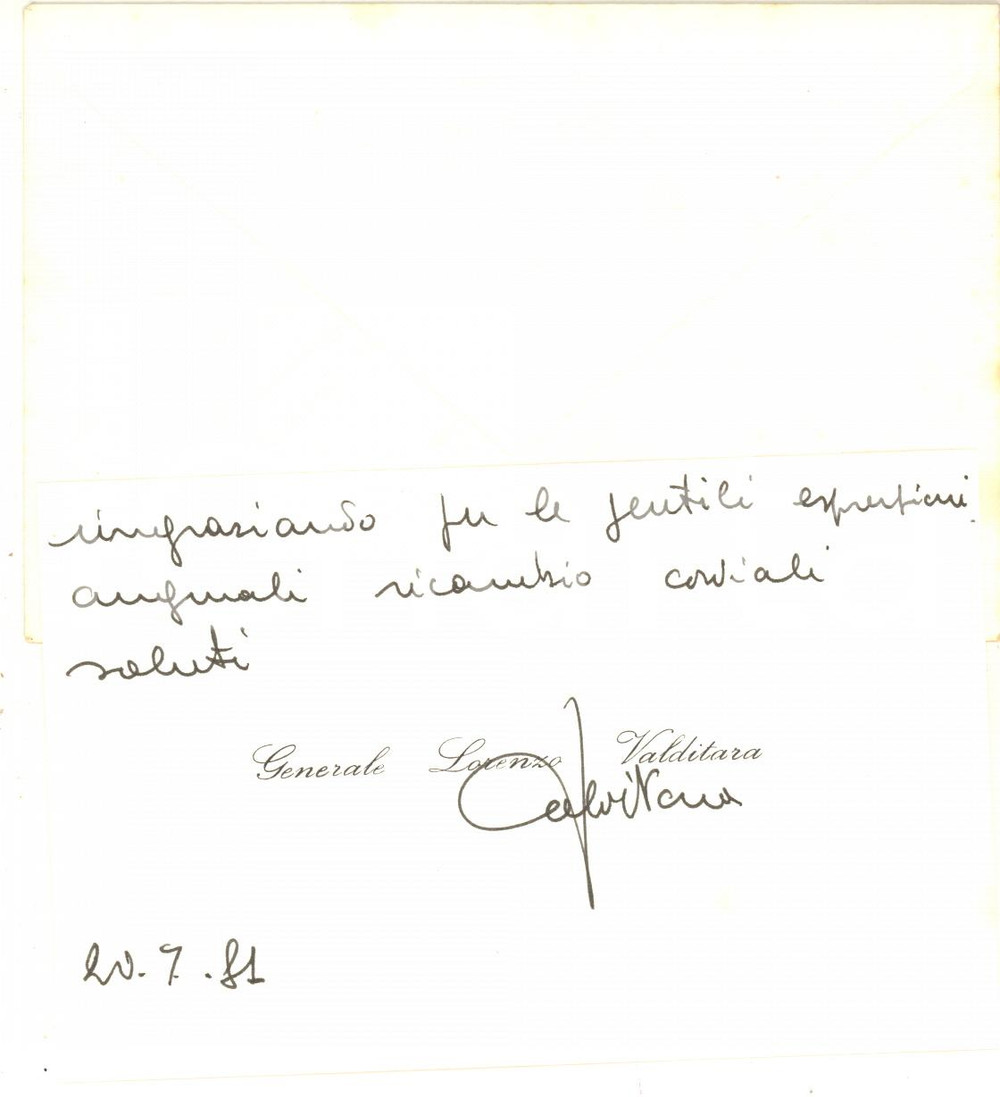 ringraziando per le gentili espressioni
augurali ricambio cordiali
saluti
Generale Lorenzo Valditara
20.7.81